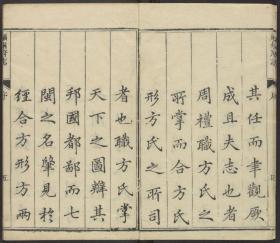 其任而聿觀厥
成且夫志也者
周禮職方氏之
所掌而合方氏
形方氏之所司
者也職方氏掌
天下之圖辨其
邦國都鄙而七
閩之名肇見於
經合方形方兩
序
五